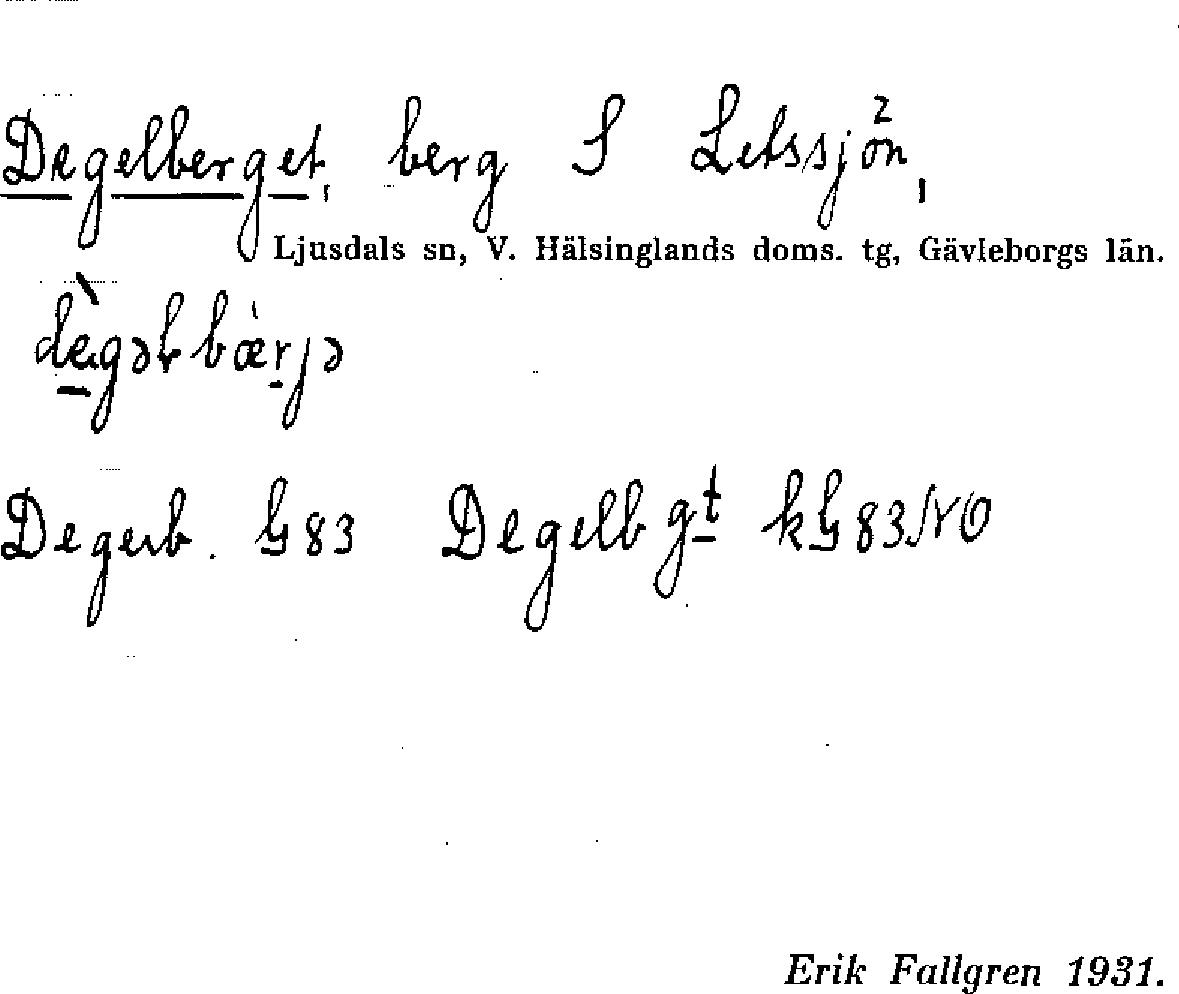 Degelberget, berg S Letssjön,
Ljusdals sn, V. Hälsinglands doms. tg, Gävleborgs län.
dègəɫbæ̀rjə
Degerb. G83 Degelbgt kG83NO
Erik Fallgren 1931.